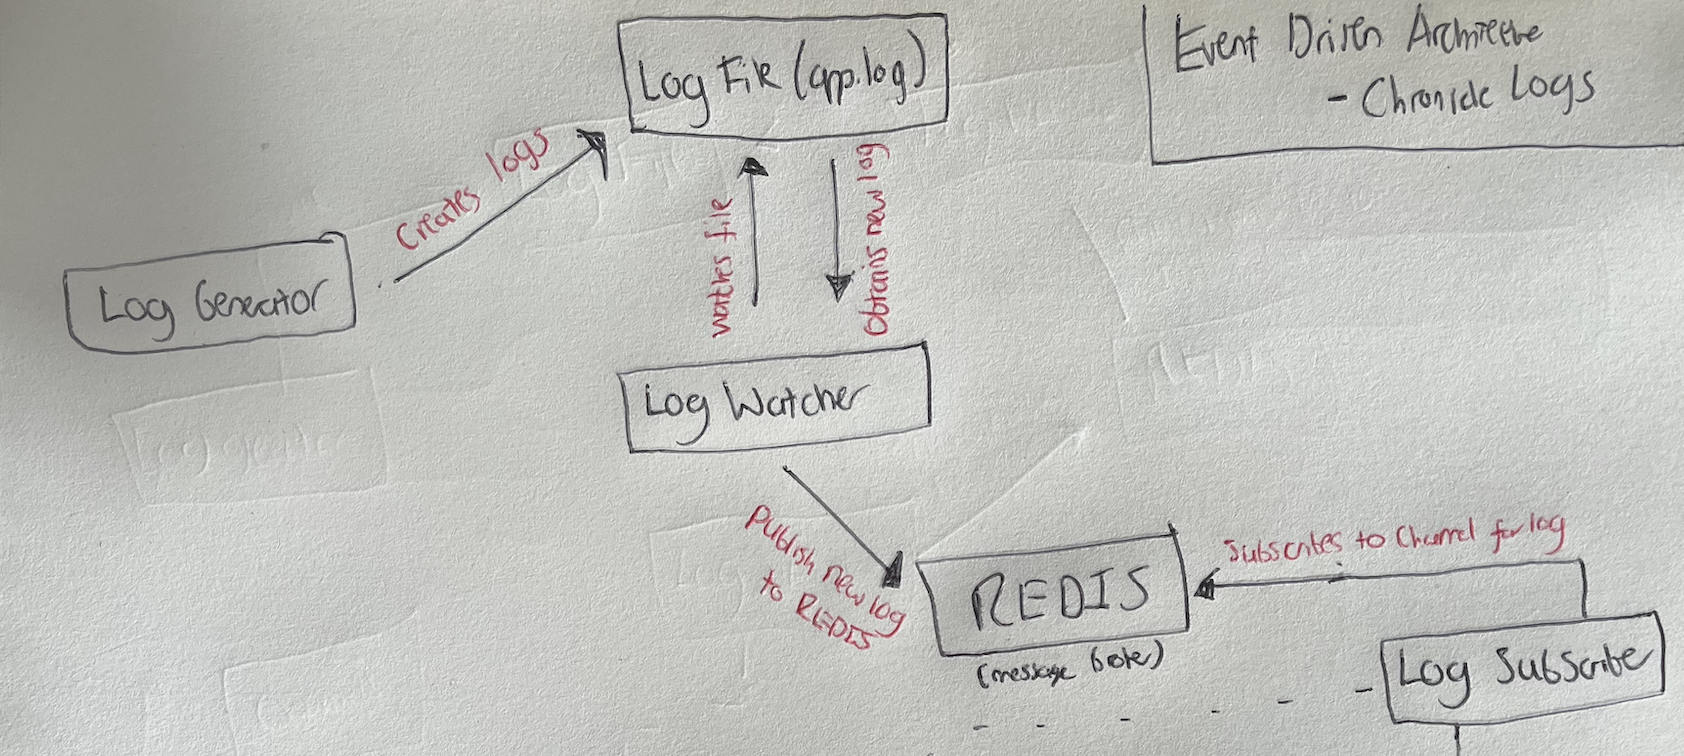 Event Driven Architecture
- Chronicle Logs
Log File (app.log)
Creates logs
Log Generator
watches file
Obtains new log
Log Watcher
Publish new log
to REDIS
REDIS
(message broker)
Subscribes to Channel for log
Log Subscribe